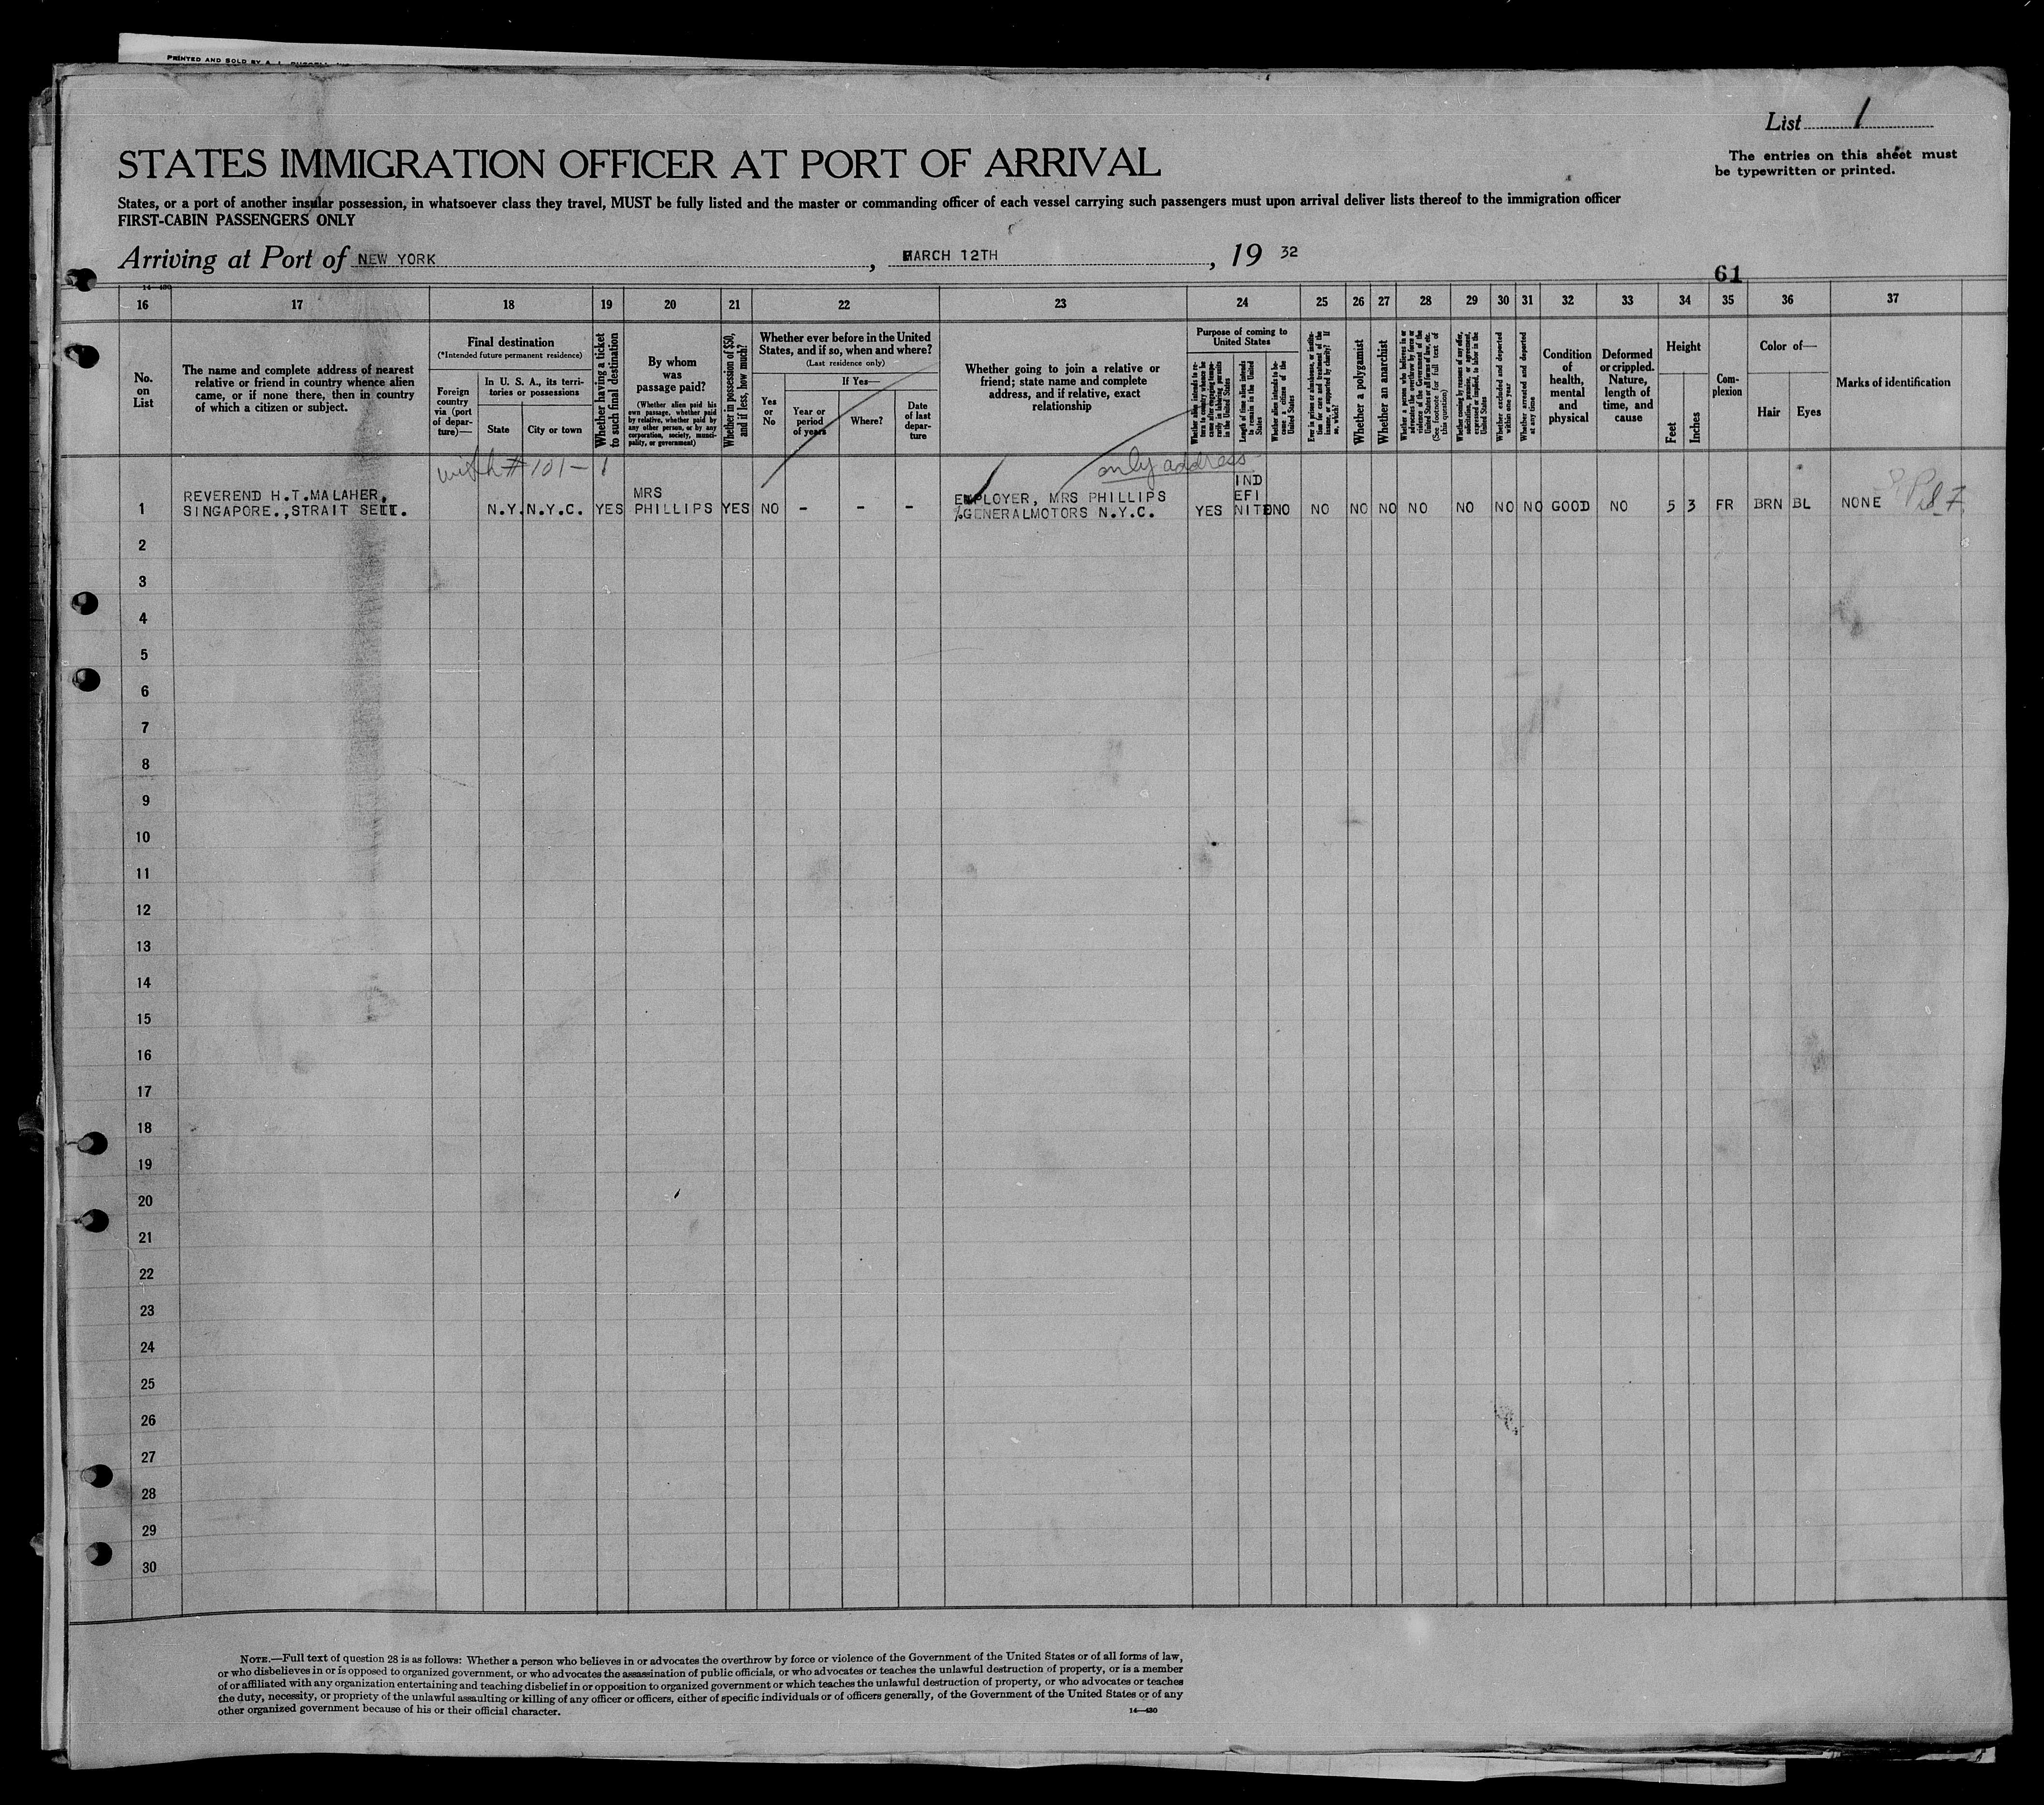 PRINTED AND SOLD BY
List 1
STATES IMMIGRATION OFFICER AT PORT OF ARRIVAL
The entries on this sheet must
be typewritten or printed.
States, or a port of another insular possession, in whatsoever class they travel, MUST be fully listed and the master or commanding officer of each vessel carrying such passengers must upon arrival deliver lists thereof to the immigration officer
FIRST-CABIN PASSENGERS ONLY
Arriving at Port of NEW YORK, MARCH 12TH, 19 32
61
14-430
16 17 18 19 20 21 22 23 24 25 26 27 28 29 30 31 32 33 34 35 36 37
No.
on
List
The name and complete address of nearest
relative or friend in country whence alien
came, or if none there, then in country
of which a citizen or subject.
Final destination
(*Intended future permanent residence)
Foreign
country
via (port
of depar-
ture)—
In U. S. A., its terri-
tories or possessions
State
City or town
Whether having a ticket
to such final destination
By whom
was
passage paid?
(Whether alien paid his
own passage, whether paid
by relative, whether paid by
any other person, or by any
corporation, society, munici-
pality, or government)
Whether in possession of $50,
and if less, how much?
Whether ever before in the United
States, and if so, when and where?
(Last residence only)
Yes
or
No
If Yes—
Year or
period
of years
Where?
Date
of last
depar-
ture
Whether going to join a relative or
friend; state name and complete
address, and if relative, exact
relationship
Purpose of coming to
United States
Whether alien intends to re-
turn to country whence he
came after engaging tempo-
rarily in laboring pursuits
in the United States
Length of time alien intends
to remain in the United
States
Whether alien intends to be-
come a citizen of the
United States
Ever in prison or almshouse, or institu-
tion for care and treatment of the
insane, or supported by charity? If
so, which?
Whether a polygamist
Whether an anarchist
Whether a person who believes in or
advocates the overthrow by force or
violence of the Government of the
United States or all forms of law, etc.
(See footnote for full text of
this question)
Whether coming by reason of any offer,
solicitation, promise, or agreement,
expressed or implied, to labor in the
United States
Whether excluded and deported
within one year
Whether arrested and deported
at any time
Condition
of
health,
mental
and
physical
Deformed
or crippled.
Nature,
length of
time, and
cause
Height
Feet
Inches
Com-
plexion
Color of—
Hair
Eyes
Marks of identification
with # 101 - 1
only address
1 REVEREND H.T.MALAHER, MRS EMPLOYER, MRS PHILLIPS IND EFI
SINGAPORE.,STRAIT SETT. N.Y. N.Y.C. YES PHILLIPS YES NO - - - %GENERALMOTORS N.Y.C. YES NITE NO NO NO NO NO NO NO NO GOOD NO 5 3 FR BRN BL NONE
2
3
4
5
6
7
8
9
10
11
12
13
14
15
16
17
18
19
20
21
22
23
24
25
26
27
28
29
30
NOTE.—Full text of question 28 is as follows: Whether a person who believes in or advocates the overthrow by force or violence of the Government of the United States or of all forms of law,
or who disbelieves in or is opposed to organized government, or who advocates the assassination of public officials, or who advocates or teaches the unlawful destruction of property, or is a member
of or affiliated with any organization entertaining and teaching disbelief in or opposition to organized government or which teaches the unlawful destruction of property, or who advocates or teaches
the duty, necessity, or propriety of the unlawful assaulting or killing of any officer or officers, either of specific individuals or of officers generally, of the Government of the United States or of any
other organized government because of his or their official character.
14—430